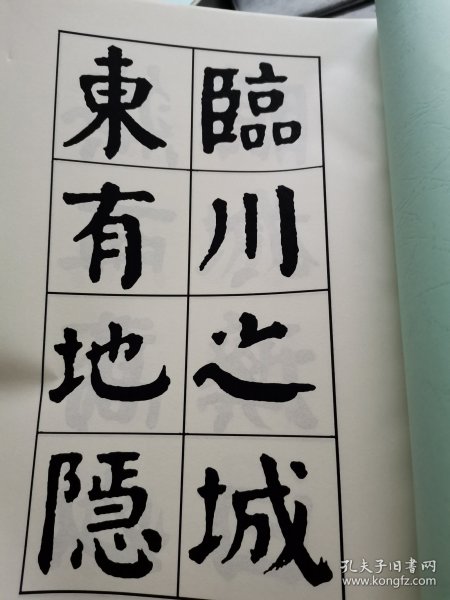 臨川之城
東有地隱
孔夫子旧书网
www.kongfz.com